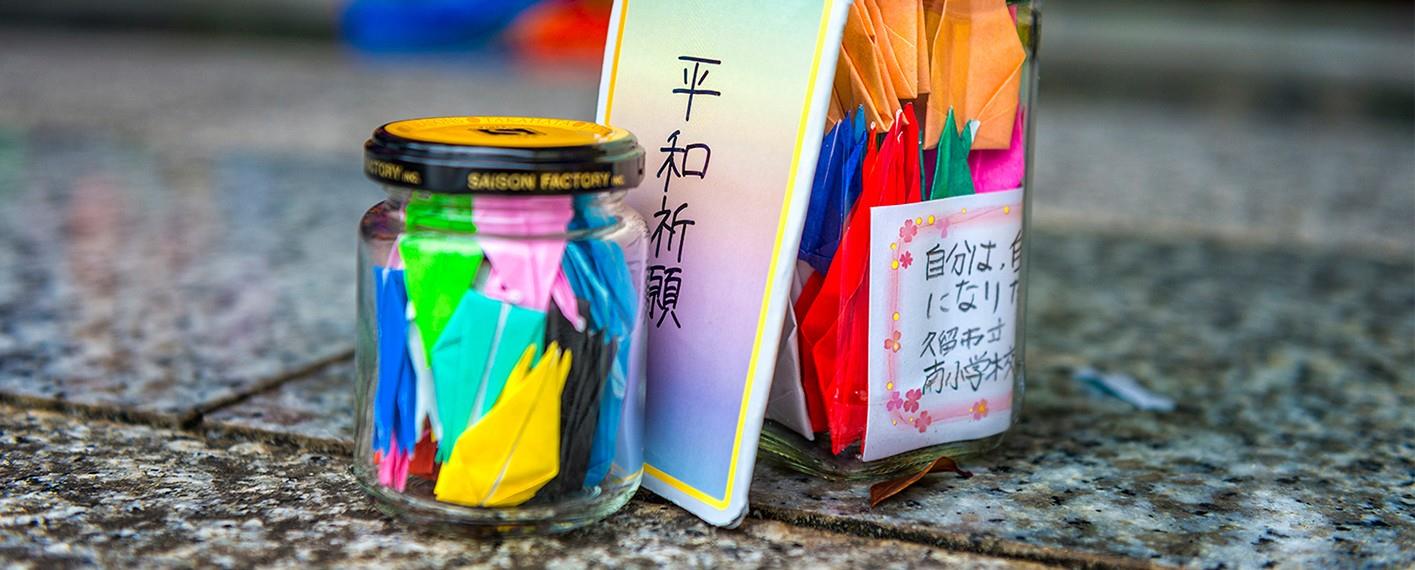 SAISON FACTORY INC.
平和祈願
自分は、自
になりた
久留市立
南小学校